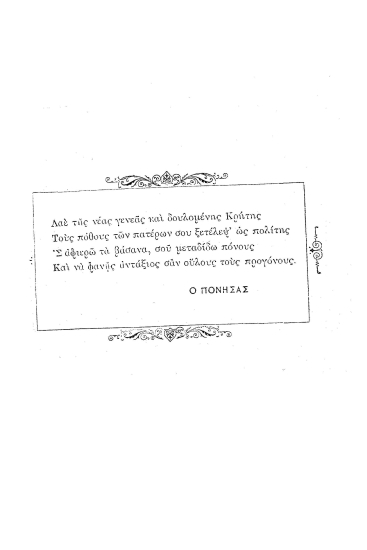 Λαὲ τῆς νέας γενεᾶς καὶ δουλομένης Κρήτης
Τοὺς πόθους τῶν πατέρων σου ξετέλεψ' ὡς πολίτης
Σ' ἀφιερῶ τὰ βάσανα, σοῦ μεταδίδω πόνους
Καὶ νὰ φανῇς ἀντάξιος σὰν οὕλους τοὺς προγόνους.
Ο ΠΟΝΗΣΑΣ